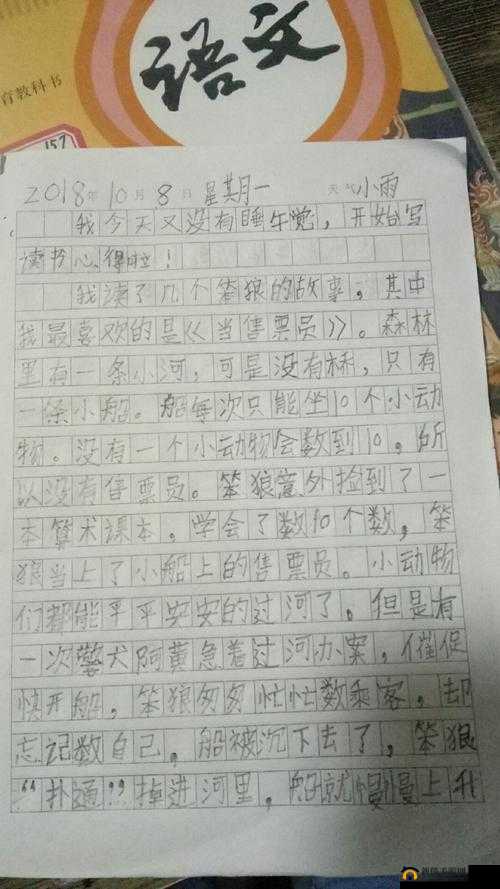 语文
育教科书
157
2018年10月8日 星期一 天气小雨
我今天又没有睡午觉，开始写
读书心得啦！
我读了几个笨狼的故事，其中
我最喜欢的是《当售票员》。森林
里有一条小河，可是没有桥，只有
一条小船。船每次只能坐10个小动
物。没有一个小动物会数到10，所
以没有售票员。笨狼意外捡到了一
本算术课本。学会了数10个数，笨
狼当上了小船上的售票员。小动物
们都能平平安安的过河了。但是有
一次警犬阿黄急着过河办案，催促
快开船，笨狼匆匆忙忙数乘客，却
忘记数自己，船被沉下去了，笨狼
“扑通”掉进河里，船就慢慢上升